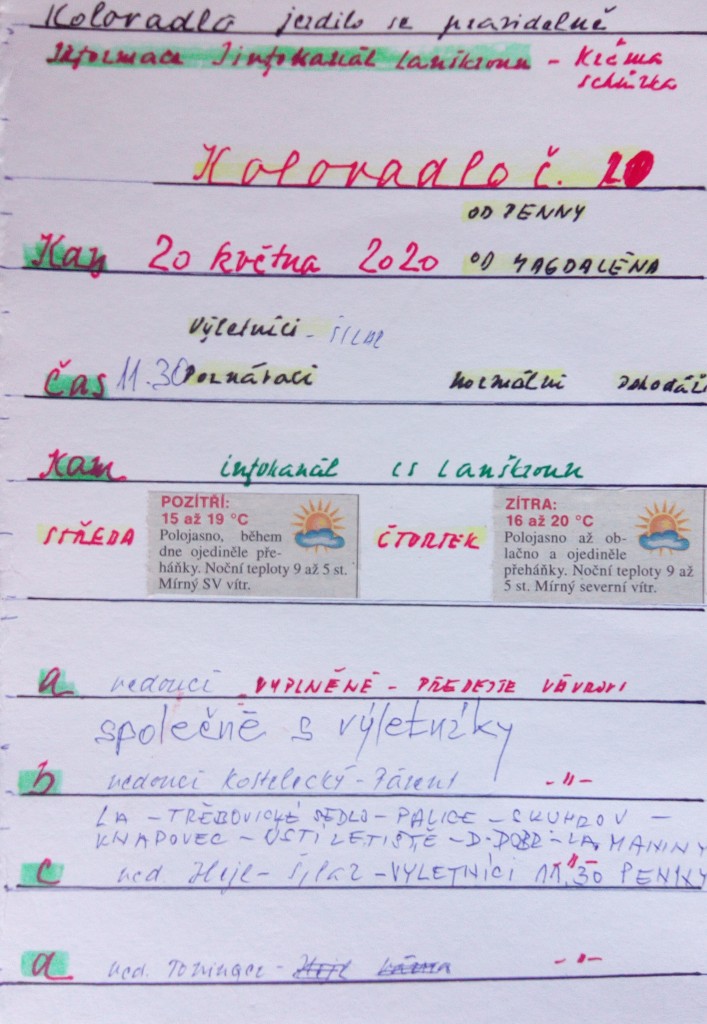 Koloradlo jezdilo se pravidelně
Informace Iinfokanál Lanškroun - Krčma
schůzka
Koloradlo č. 20
OD PENNY
Kdy 20 května 2020 OD MAGDALÉNA
Výletníci - ŠILAR
Čas 11.30 Poznávací normální Pohodáři
Kam infokanál cs Lanškroun
STŘEDA
POZÍTŘÍ:
15 až 19 °C
Polojasno, během
dne ojediněle pře-
háňky. Noční teploty 9 až 5 st.
Mírný SV vítr.
ČTVRTEK
ZÍTRA:
16 až 20 °C
Polojasno až ob-
lačno a ojediněle
přeháňky. Noční teploty 9 až
5 st. Mírný severní vítr.
a vedoucí VYPLNĚNÉ - PŘEDEJTE VÁVROVI
společně s výletníky
b vedoucí Kostelecký - -"-
LA - TŘEBOVICKÉ SEDLO - PALICE - SKUHROV -
KNAPOVEC - ÚSTÍ LETIŠTĚ - D. DOBR - LA. MANINY
c ved Hejl - Šilar - VÝLETNÍCI 11,30 PENNY -"-
a ved. -"-